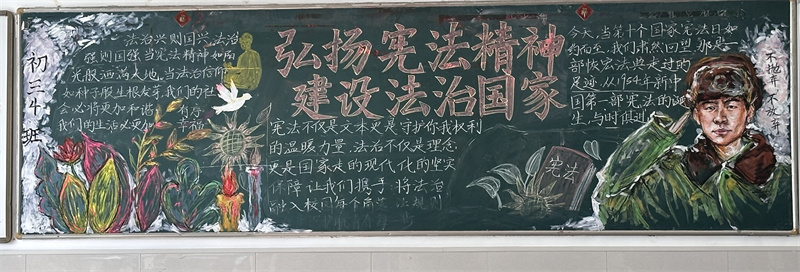 初三4班
法治兴则国兴，法治
强则国强当宪法精神如阳
光般洒满大地，当法治信仰
如种子般生根发芽我们的社
会必将更加和谐 有序
我们的生活必更加 幸福
弘扬宪法精神
建设法治国家
宪法不仅是文本更是守护你我权利
的温暖力量，法治不仅是理念
更是国家走的现代化的坚实
保障 让我们携手 将法治
融入校园每个 规则
宪法
今天，当第十个国家宪法日如
约而至，我们 回望，那是一
部恢宏法典走过的
足迹，从1954年新中
国第一部宪法的诞
生，与时俱进
不抛弃 不放弃